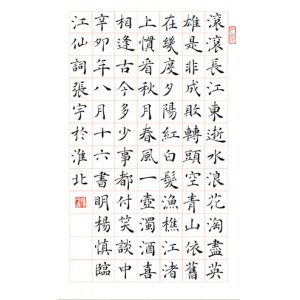 滾滾長江東逝水浪花淘盡英
雄是非成敗轉頭空青山依舊
在幾度夕陽紅白髮漁樵江渚
上慣看秋月春風一壺濁酒喜
相逢古今多少事都付笑談中
辛卯年八月十六書明楊慎臨
江仙詞張宇於淮北